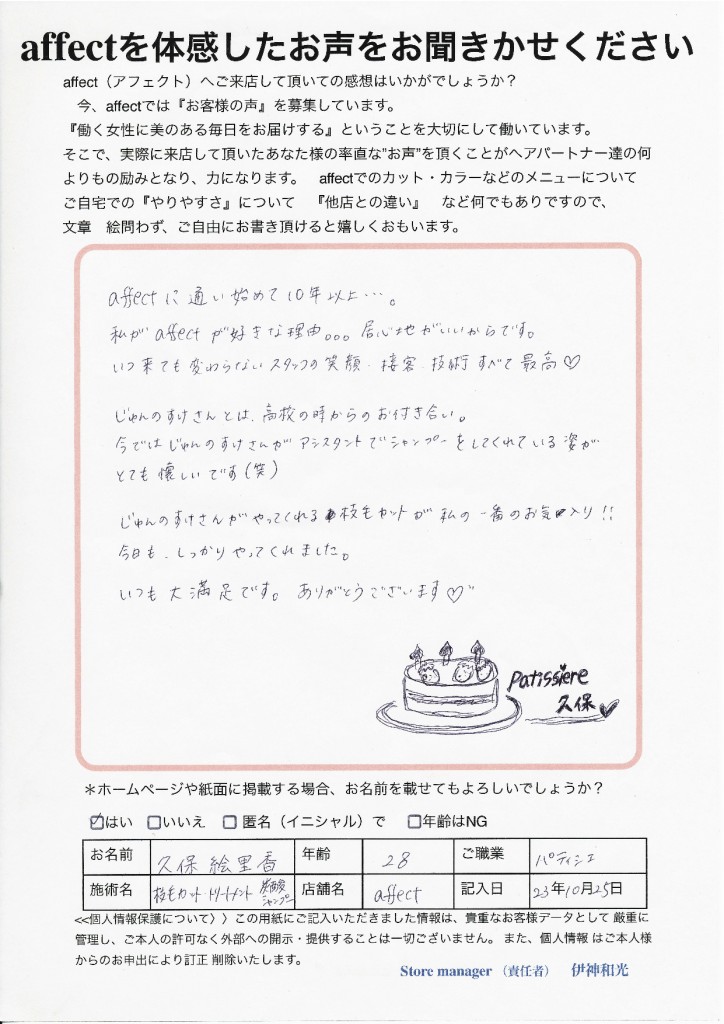 affectを体感したお声をお聞きかせください
affect（アフェクト）へご来店して頂いての感想はいかがでしょうか？
今、affectでは『お客様の声』を募集しています。
『働く女性に美のある毎日をお届けする』ということを大切にして働いています。
そこで、実際に来店して頂いたあなた様の率直な"お声"を頂くことがヘアパートナー達の何
よりもの励みとなり、力になります。　affectでのカット・カラーなどのメニューについて
ご自宅での『やりやすさ』について　『他店との違い』　など何でもありですので、
文章　絵問わず、ご自由にお書き頂けると嬉しくおもいます。
affectに通い始めて10年以上…。
私がaffectが好きな理由。。。居心地がいいからです。
いつ来ても変わらないスタッフの笑顔・接客・技術すべて最高♡
じゅんのすけさんとは、高校の時からのお付き合い。
今ではじゅんのすけさんがアシスタントでシャンプーをしてくれている姿が
とても懐しいです(笑)
じゅんのすけさんがやってくれる枝毛カットが私の一番のお気入り!!
今日も、しっかりやってくれました。
いつも大満足です。ありがとうございます♡"
Patissiere
久保
＊ホームページや紙面に掲載する場合、お名前を載せてもよろしいでしょうか？
☑はい　□いいえ　□ 匿名（イニシャル）で　□年齢はNG
お名前　久保 絵里香　年齢　28　ご職業　パティシエ
施術名　枝毛カット・トリートメント 炭酸シャンプー　店舗名　affect　記入日　23年10月25日
<<個人情報保護について〉〉この用紙にご記入いただきました情報は、貴重なお客様データとして 厳重に
管理し、ご本人の許可なく外部への開示・提供することは一切ございません。また、個人情報 はご本人様
からのお申出により訂正 削除いたします。
Store manager （責任者）　伊神和光